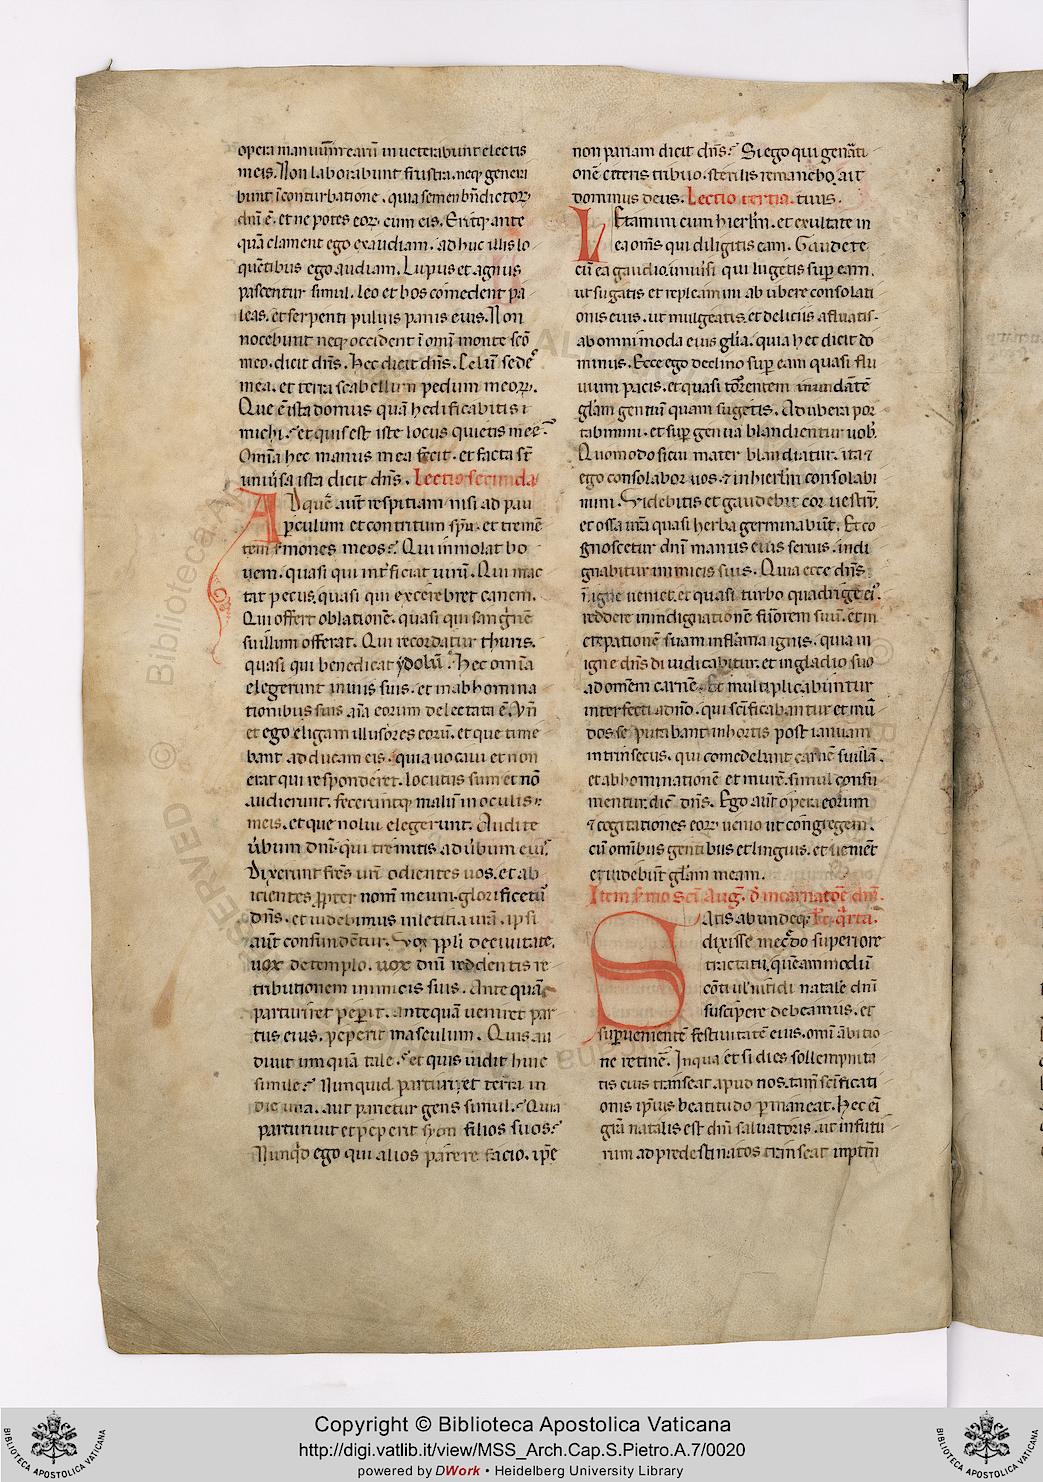 opera manuum earū inueterabunt electis
meis. Non laborabunt frustra. neq; generā
bunt ī conturbatione. quia semen bn̄dictorꝝ
dn̄i ē. et nepotes eorꝝ cum eis. Eritq; ante
quā clament ego exaudiam. adhuc illis lo
quētibus ego audiam. Lupus et agnus
pascentur simul. leo et bos comedent pa
leas. et serpenti puluis panis eius. Non
nocebunt neq; occident ī omī monte sc̄o
meo. dicit dn̄s. Hec dicit dn̄s. Celū sedeˢ
mea. et terra scabellum pedum meorꝝ.
Que ē ista domus quā hedificabitis
michi. et quis est iste locus quietis mee.
Om̄ia hec manus mea fecit. et facta sūt
uniūsa ista dicit dn̄s. Lectio secunda
Ad quē aut̄ respitiam nisi ad pau
ꝑculum et contritum spū. et tremē
tem s̄mones meos. Qui inmolat bo
uem. quasi qui int̄ficiat uirū. Qui mac
tat pecus. quasi qui excerebret canem.
Qui offert oblationē. quasi qui sanguinē
suillum offerat. Qui recordatur thuris.
quasi qui benedicat ydolū. Hec om̄ia
elegerunt in uiis suis. et in abhomina
tionibus suis aīa eorum delectata ē. Vn̄
et ego eligam illusores eorū. et que time
bant adducam eis. quia uocaui et non
erat qui responderet. locutus sum et nō
audierunt. feceruntq; malū in oculis
meis. et que nolui elegerunt. Audite
ūbum dn̄i qui tremitis ad ūbum eiuˢ.
Dixerunt frēs ur̄i odientes uos. et ab
icientes ꝓpter nom̄ meum. glorificetuˢ
dn̄s. et uidebimus in letitia ur̄a. ipsi
aut̄ confundētur. Vox ppl̄i de ciuitate.
uox de templo. uox dn̄i reddentis re
tributionem inimicis suis. Ante quā
parturiret peꝑit. ante quā ueniret par
tus eius. peperit masculum. Quis au
diuit um quā tale. et quis uidit huic
simile. Nunquid parturiet terra in
die una. aut parietur gens simul. Quia
parturiuit et peperit syon filios suos.
Nunqđ ego qui alios parere facio. ip̄e
non pariam dicit dn̄s. Si ego qui gen̄ati
onē ceteris tribuo. sterilis remanebo. ait
dominus deus. Lectio tertia. tuus.
Letamini cum hierl̄m. et exultate in
ea om̄s qui diligitis eam. Gaudete
cū ea gaudio. uniūsi qui lugetis suꝑ eam.
ut sugatis et repleamini ab ubere consolati
onis eius. ut mulgeatis. et delitiis afluatis.
ab omnimoda eius gl̄ia. quia hec dicit do
minus. Ecce ego declino suꝑ eam quasi flu
uium pacis. et quasi torrentem inundātē
gl̄am gentiū quam sugetis. Ad ubera por
tabimini. et suꝑ genua blandientur uob̄.
Quomodo sicui mater blandiatur. ita ⁊
ego consolabor uos. ⁊ in hierl̄m consolabi
mini. Videbitis et gaudebit cor uestrū.
et ossa ur̄a quasi herba germinabūt. Et co
gnoscetur dn̄i manus eius seruis. indi
gnabitur inimicis suis. Quia ecce dn̄s
ī igne ueniet. et quasi turbo quadrigē eiˢ.
reddere in indignationē furorem suū. et in
crepationē suam in flāma ignis. quia in
igne dn̄s diiudicabitur. et in gladio suo
ad omēm carnē. Et multiplicabuntur
interfecti a dn̄o. qui sc̄ificabantur et mū
dos se putabant in hortis post ianuam
intrinsecus. qui comedebant carnē suillā.
et abhominationē et murē. simul consu
mentur. dic̄ dn̄s. Ego aut̄ opera eorum
⁊ cogitationes eorꝝ uenio ut congregem.
cū omībus gentibus et linguis. et uenient
et uidebūt gl̄am meam.
Item s̄mo sc̄i Aug̃. đ incarnatōe dn̄i.
Satis abundeq;
dixisse me credo superiore
tractatu. quēammodū
natale dn̄i
susciꝑere debeamus. et
suꝑuenientē festiuitatē eius. omī ābitio
ne retinē. In qua et si dies sollempnita
tis eius transeat. apud nos. tam̄ sc̄ificati
onis ip̄ius beatitudo ꝑmaneat. Hec eī
gr̄a natalis est dn̄i saluatoris. ut in futu
rum ad predestinatos transeat